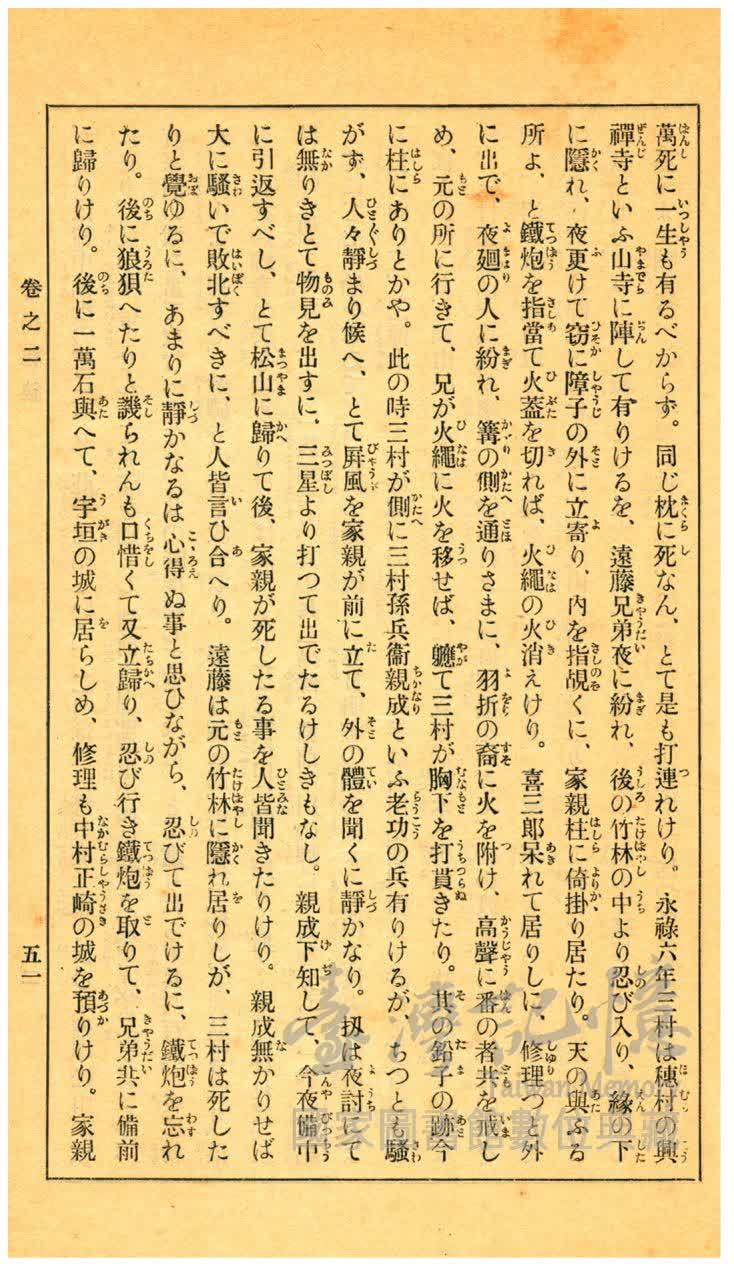 萬死に一生も有るべからず。同じ枕に死なん、とて是も打連れけり。永祿六年三村は穗村の興
禪寺といふ山寺に陣して有りけるを、遠藤兄弟夜に紛れ、後の竹林の中より忍び入り、緣の下
に隱れ、夜更けて窃に障子の外に立寄り、內を指覘くに、家親柱に倚掛り居たり。天の與ふる
所よ、と鐵炮を指當て火蓋を切れば、火繩の火消えけり。喜三郎呆れて居りしに、修理つと外
に出で、夜廻の人に紛れ、篝の側を通りさまに、羽折の裔に火を附け、高聲に番の者共を戒し
め、元の所に行きて、兄が火繩に火を移せば、軈て三村が胸下を打貫きたり。其の鉛子の跡今
に柱にありとかや。此の時三村が側に三村孫兵衞親成といふ老功の兵有りけるが、ちつとも騷
がず、人々靜まり候へ、とて屛風を家親が前に立て、外の體を聞くに靜かなり。扨は夜討にて
は無りきとて物見を出すに、三星より打つて出でたるけしきもなし。親成下知して、今夜備中
に引返すべし、とて松山に歸りて後、家親が死したる事を人皆聞きたりけり。親成無かりせば
大に騷いで敗北すべきに、と人皆言ひ合へり。遠藤は元の竹林に隱れ居りしが、三村は死した
りと覺ゆるに、あまりに靜かなるは心得ぬ事と思ひながら、忍びて出でけるに、鐵炮を忘れ
たり。後に狼狽へたりと譏られんも口惜くて又立歸り、忍び行き鐵炮を取りて、兄弟共に備前
に歸りけり。後に一萬石與へて、宇垣の城に居らしめ、修理も中村正崎の城を預りけり。家親
卷之二
五一
臺灣記憶
Taiwan Memory
國家圖書館數位典藏